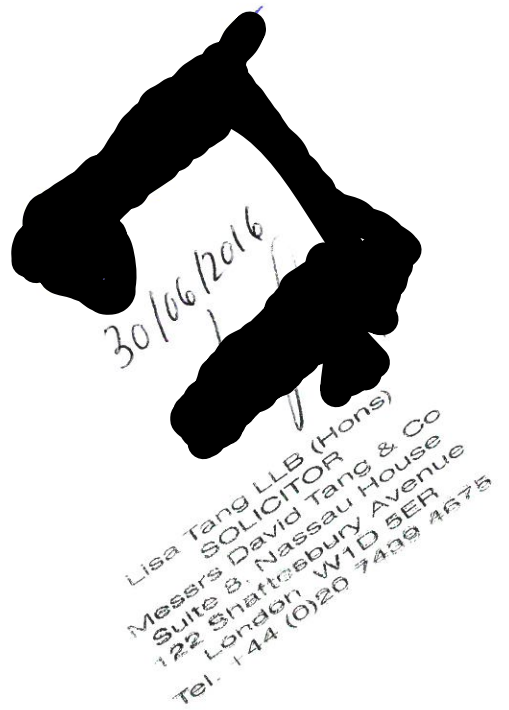 30/06/2016
Lisa Tang LLB (Hons)
SOLICITOR
Messrs David Tang & Co
Suite 8, Nassau House
122 Shaftesbury Avenue
London W1D 5ER
Tel. +44 (0)20 7439 4675